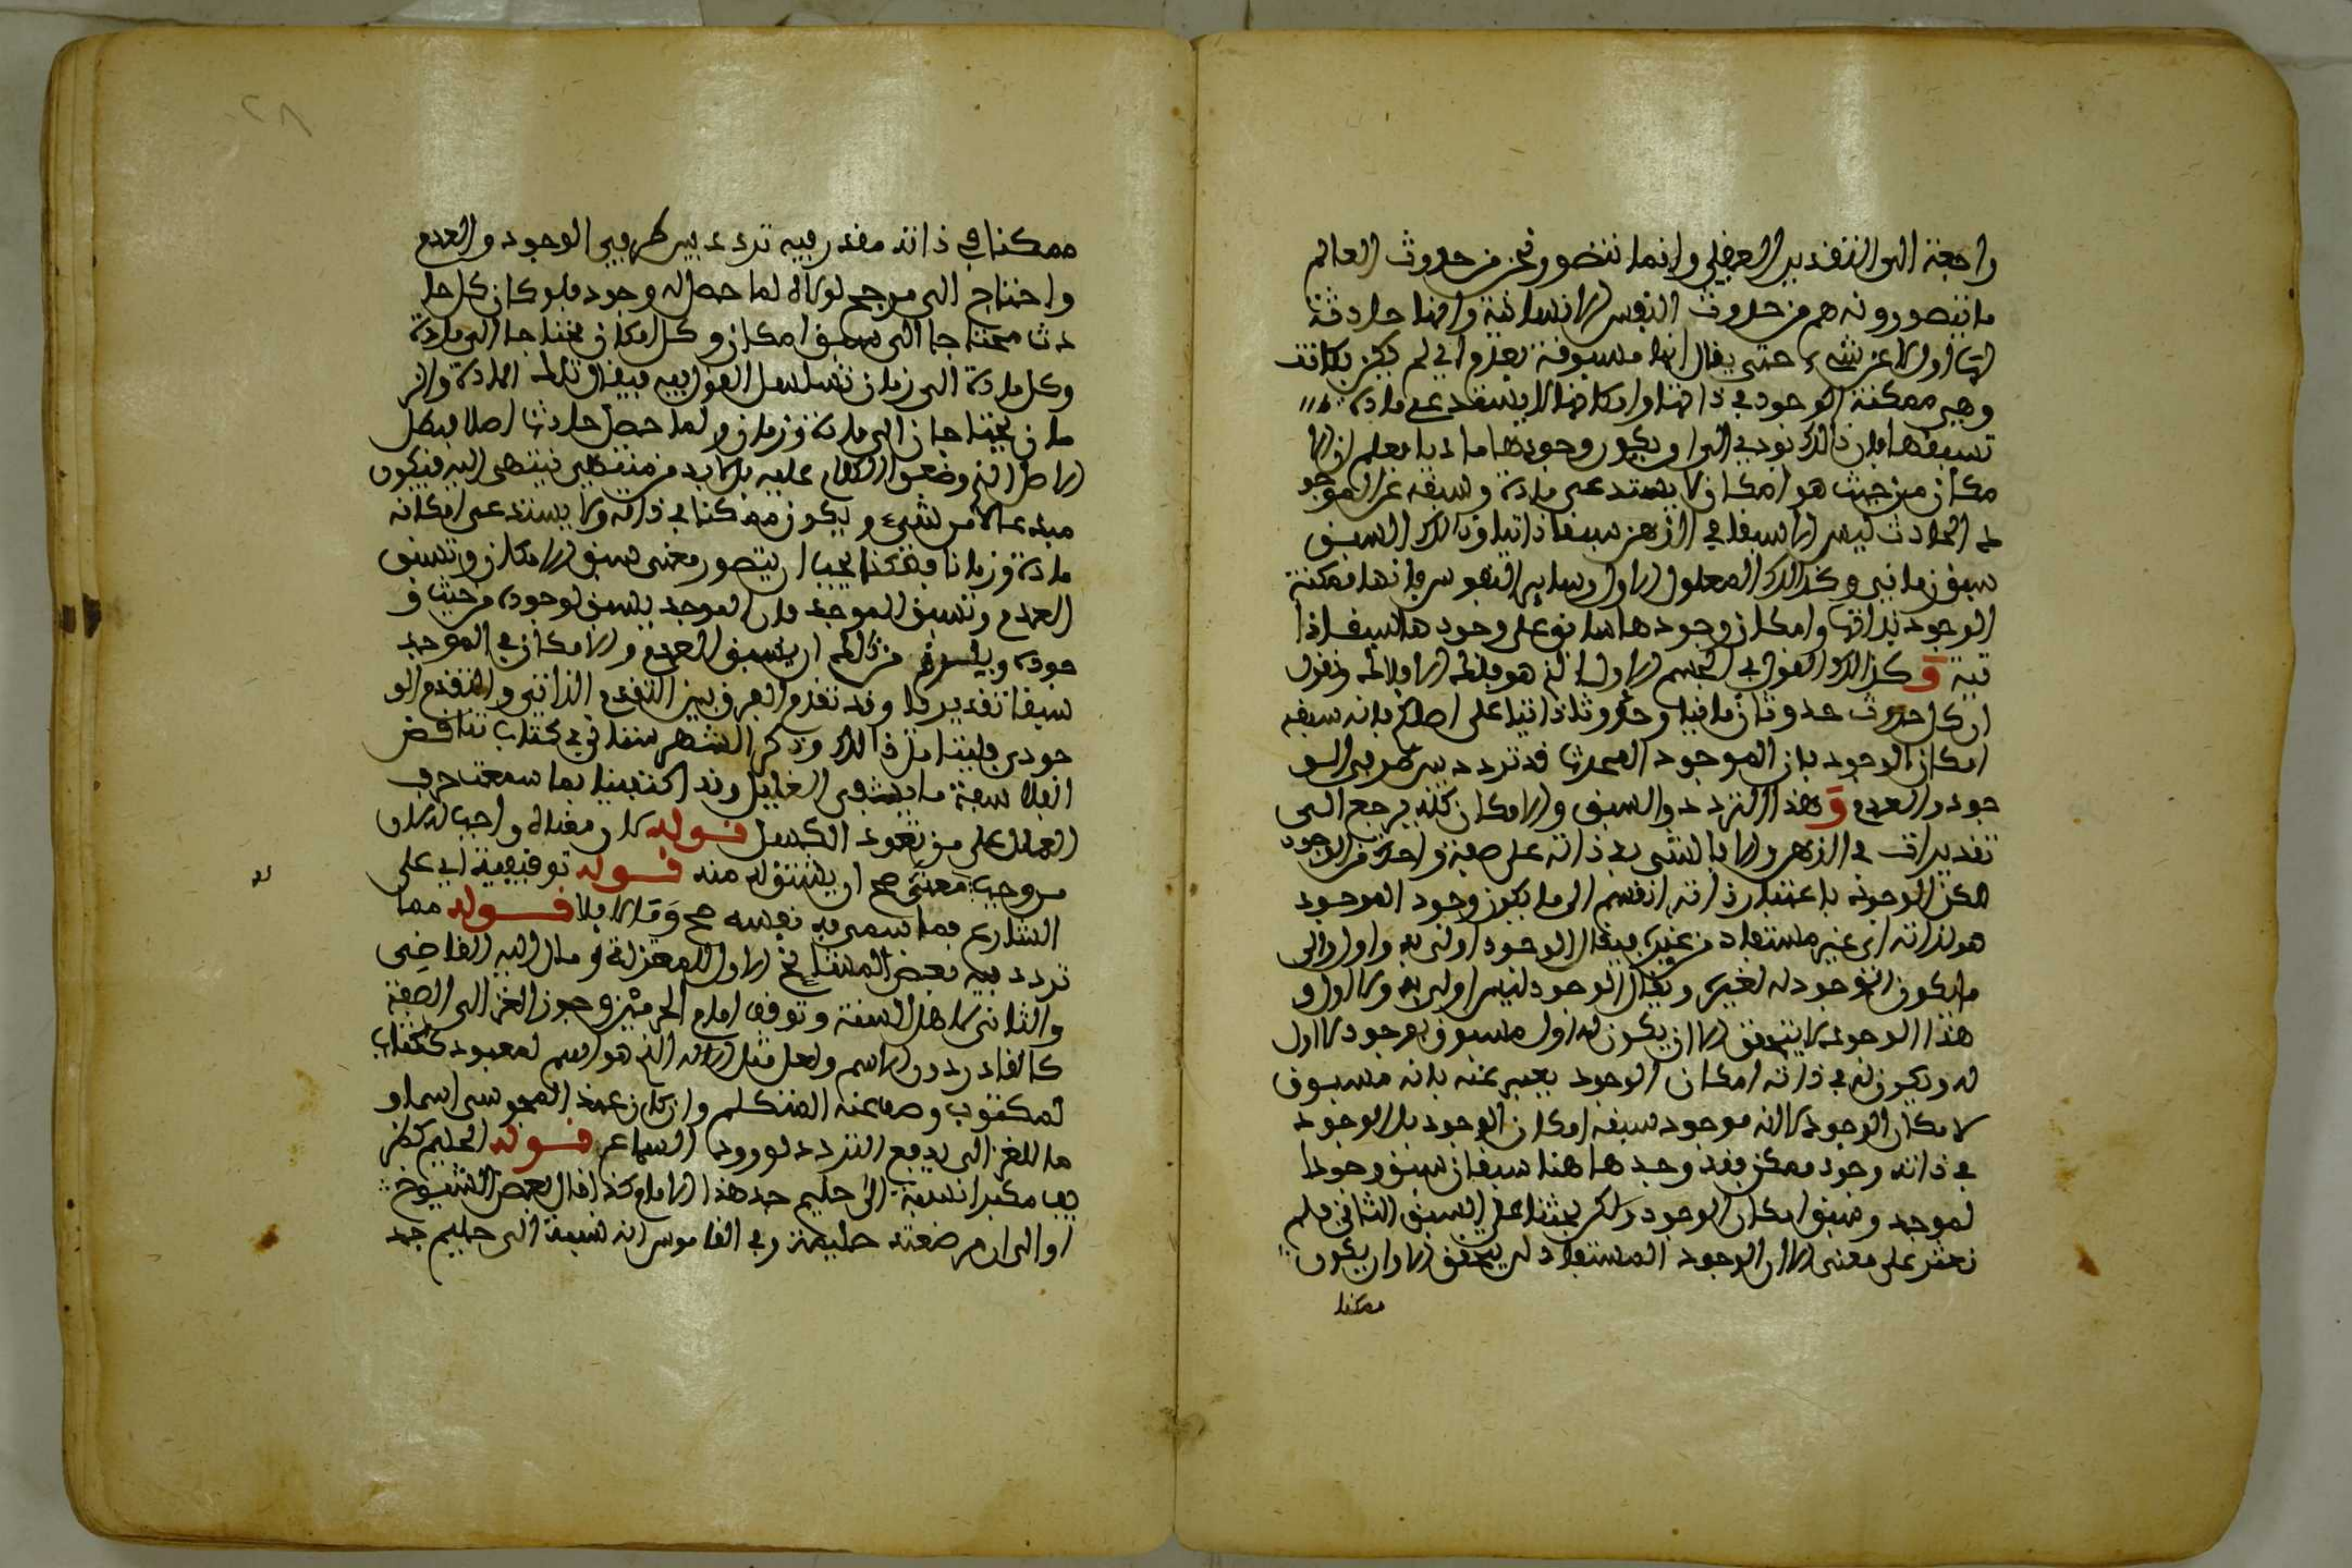 راجعة الى التقدير العقلي وانما نتصور نحن من حدوث العالم
ما نتصورونه هم من حدوث النفوس الانسانية وانها حادثة
لها اول لا عن شيء حتى يقال انها مسبوقة بعدم اي لم يكن بكانت
وهي ممكنة الوجود في ذاتها وامكانها لا يستدعي مادة
تسبقها فان ذالك يودي الى ان يكون وجودها ماديا فعلم ان الا
مكان من حيث هو امكان لا يستدعي مادة وسبقه على الموجو
د الحادث ليس الا سبقا في الذهن سبقا ذاتيا وذالك السبق
سبق زماني وكذالك المعلول الاول وساير النفوس فانها ممكنة
الوجود بذاتها وامكان وجودها سابق على وجودها سبقا ذا
تيا وكذالك القول في الجسم الاول الذي هو فلك الافلاك ونقول
ان كل حادث حدوثا زمانيا وحدوثا ذاتيا على اصلكم فانه سبقه
امكان الوجود فان الموجود المحدث قد تردد بين طرفي الو
جود والعدم وهذا التردد والسبق والامكان كله يرجع الى
تقديرات في الذهن والا فالشي في ذاته على صفة واحدة من الوجود
لكن الوجود باعتبار ذاته انقسم الى ما يكون وجود الموجود
هو لذاته اي غير مستفاد من غيره فيقال الوجود اولى به واول والى
ما يكون الوجود له لغيره ويقال الوجود ليس اولى به ولا اول و
هذا الوجود لا يتحقق الا ان يكون له اول مسبوق بوجود لا اول
له ويكون له في ذاته امكان الوجود يعبر عنه بانه مسبوق
لامكان الوجود لا انه موجود سبقه امكان الوجود بل الوجود
في ذاته وجود ممكن فقد وجدها هنا سبقان سبق وجود ا
لموجد وسبق امكان الوجود ولكن بحثنا على السبق الثاني فلم
نعثر على معنى الا ان الوجود المستفاد لن يتحقق الا وان يكون
ممكنا
ممكنا في ذاته مقدر فيه تردد بين طرفي الوجود والعدم
واحتاج الى مرجح لولاه لما حصل له وجود فلو كان كل حا
دث محتاجا الى سبق امكان وكل امكان محتاجا الى مادة
وكل مادة الى زمان تسلسل القول فيه فيقال تلك المادة والز
مان يحتاجان الى مادة وزمان ولما حصل حادث اصلا فبطل
الاصل الذي وضعوا الكلام عليه بل لا بد من منقطع ينتهي اليه فيكون
مبدعا لا من شيء ويكون ممكنا في ذاته ولا يستدعي امكانه
مادة وزمانا فهكذا يجب ان يتصور معنى سبق الامكان وتسبق
العدم وتسبق الموجد فان الموجد يسبق لوجوده من حيث و
جوده وليس من ذالك ان يسبق العدم والامكان في الموجد
سبقا تقديريا وقد تقدم الفرق بين التقدم الذاتي والتقدم الو
جودي فليتامل ذالك وذكر الشهرستاني في كتاب تناقض
الفلاسفة ما يشفي الغليل وقد اكتفينا بما سمعت خوف
الملال على من تعود الكسل قوله كان معناه واجب له كان
من وجب بمعنى صح ان يشتق له منه قوله توقيفية اي على
الشارع فما سمى به نفسه صح وما لا فلا قوله مما
تردد فيه بعض المشايخ الاول للمعتزلة ومال اليه القاضي
والثاني لاهل السنة وتوقف امام الحرمين وجوز الغزالي الصفة
كالقادر دون الاسم ولعل مثل الاله الذي هو اسم لمعبود ككتاب
لمكتوب وصف عند المتكلم وان كان عند الفحوس اسما و
ما للغزالي يدفع التردد لورود السماع قوله الحليمي كظر
يف مكبرا نسبة الى حليم جد هذا الامام وكذا قال بعض الشيوخ
او الى ان مرضعته حليمة وفي القاموس انه نسبة الى حليم جد